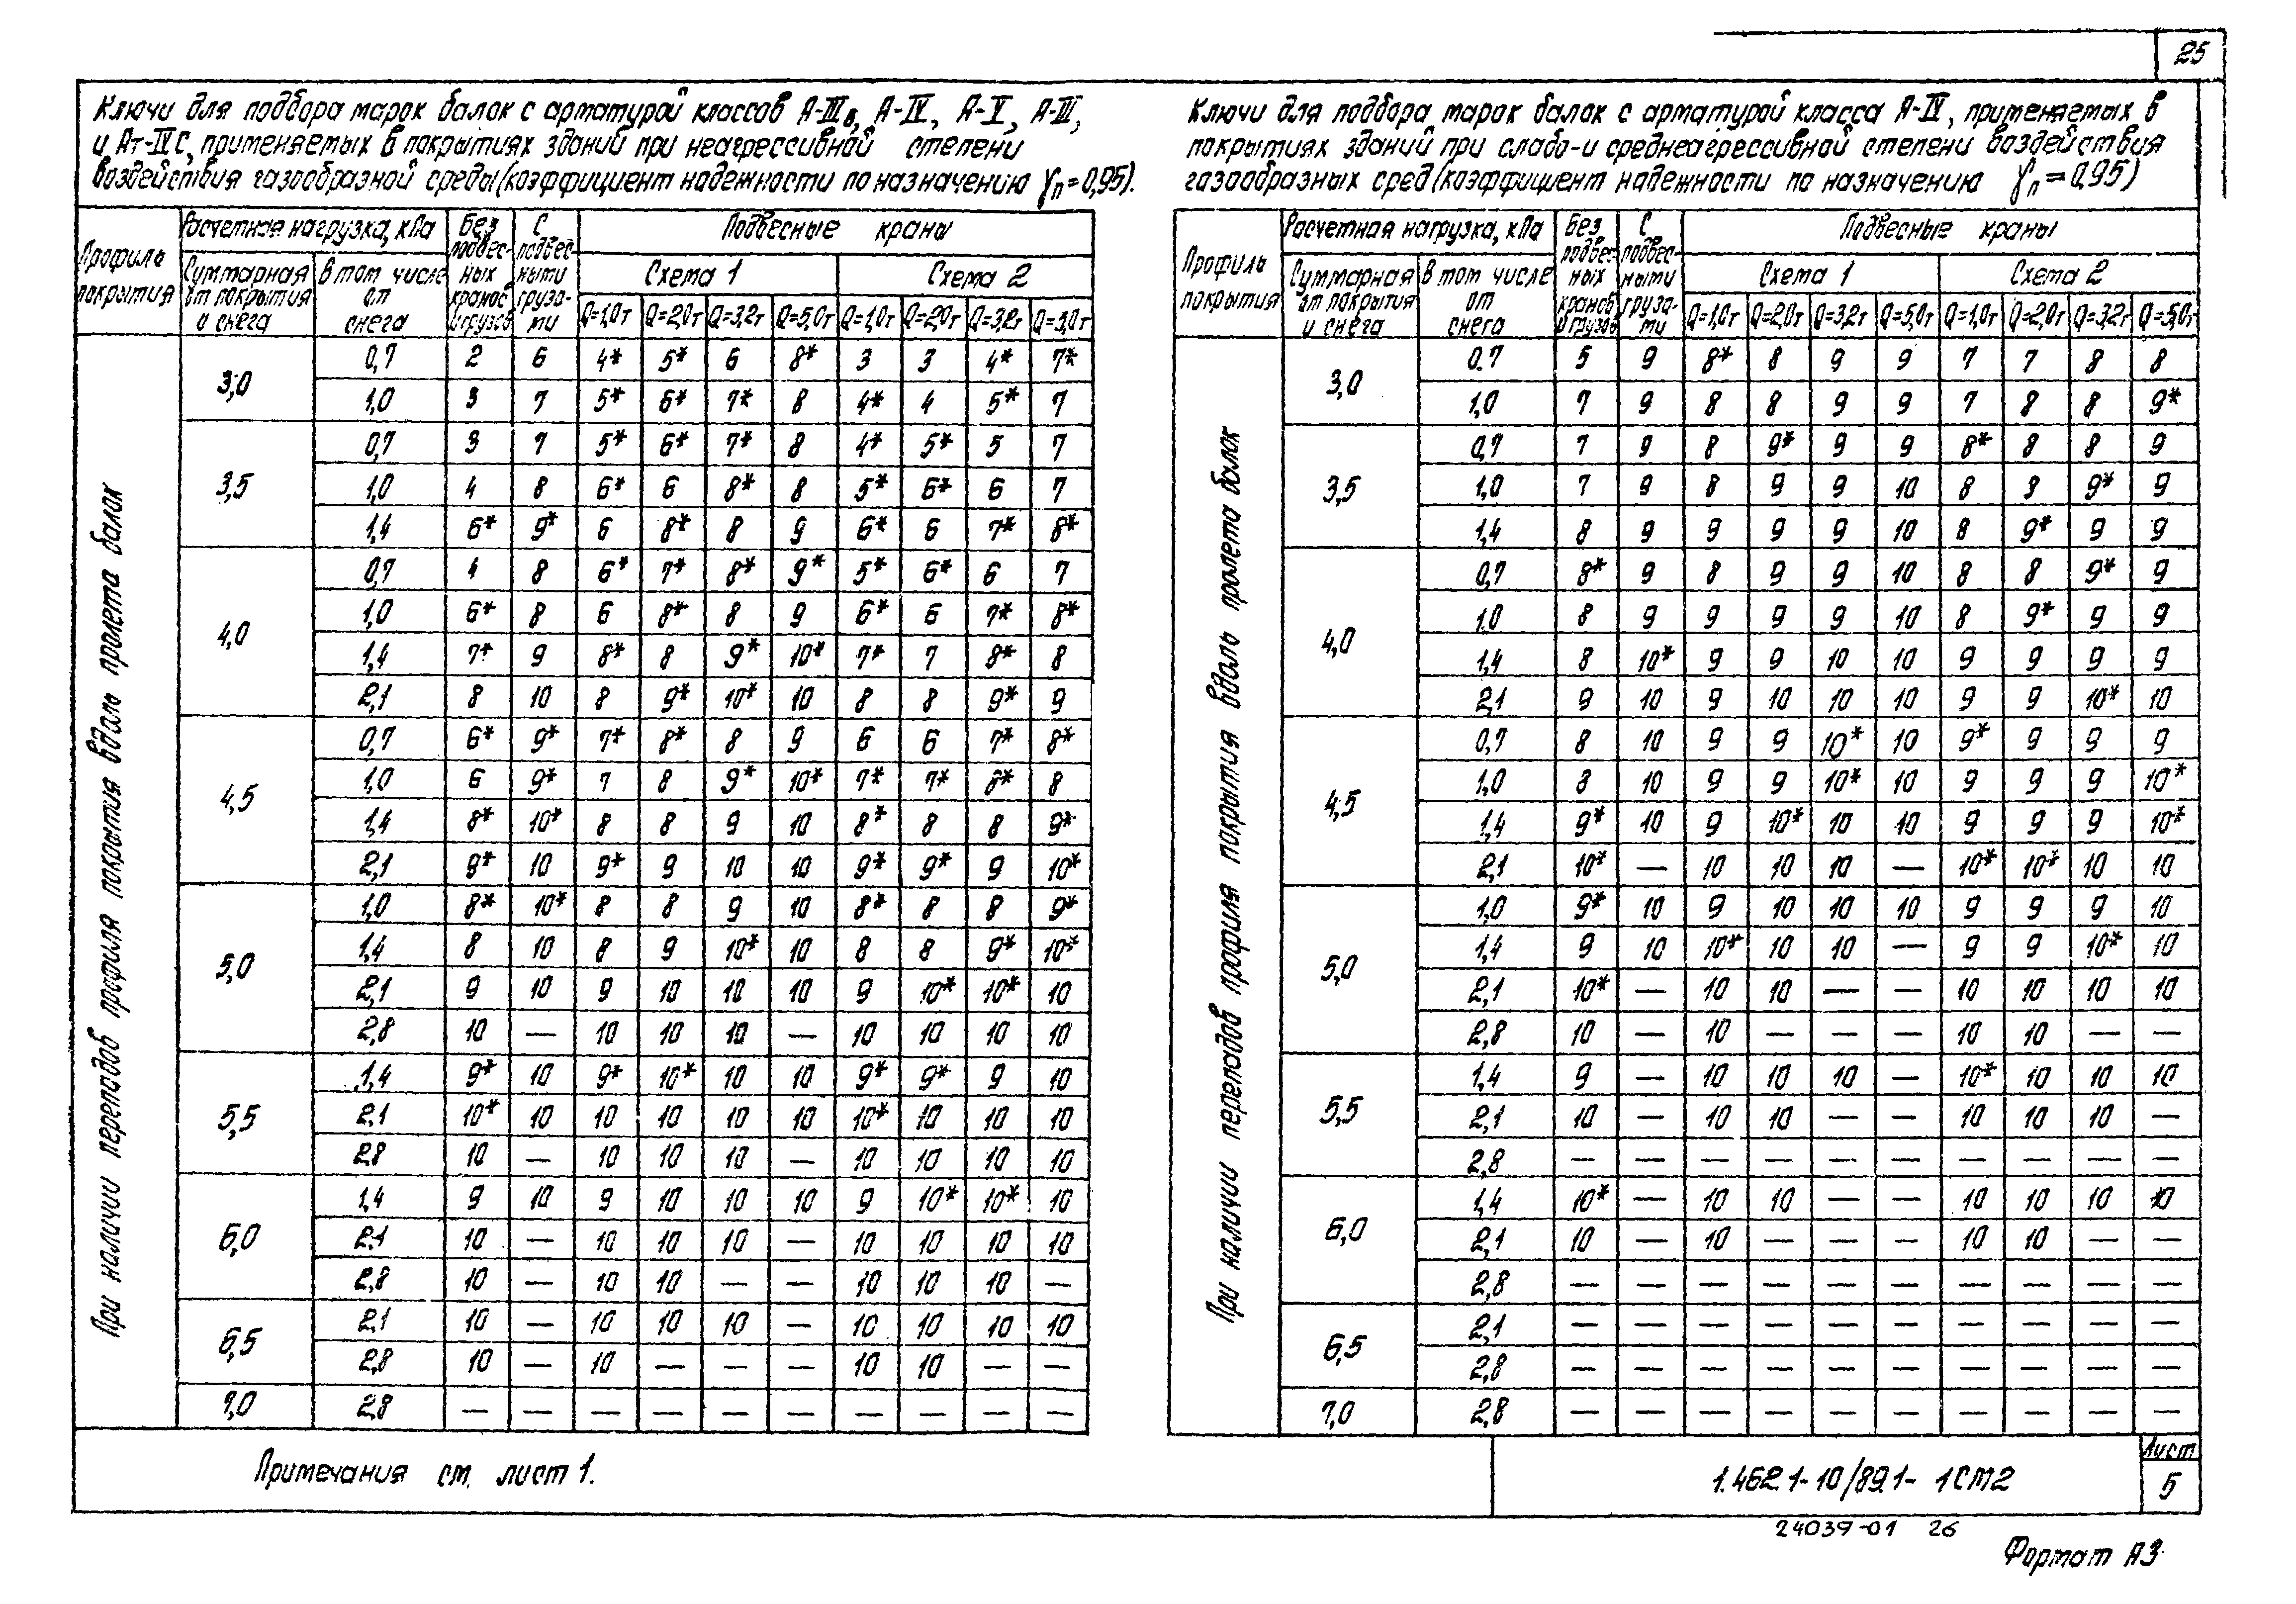 25
Ключи для подбора марок балок с арматурой классов А-IIIв, А-IV, А-V, А-III,
и Ат-IVС, применяемых в покрытиях зданий при неагрессивной степени
воздействия газообразной среды (коэффициент надежности по назначению γп=0,95).
Профиль покрытия
Расчетная нагрузка, кПа
Без подвесных кранов и грузов
С подвесными грузами
Подвесные краны
Суммарная от покрытия и снега
В том числе от снега
Схема 1
Схема 2
Q=1,0т Q=2,0т Q=3,2т Q=5,0т Q=1,0т Q=2,0т Q=3,2т Q=5,0т
При наличии перепадов профиля покрытия вдоль пролета балок
3,0 0,7 2 6 4* 5* 6 8* 3 3 4* 7*
1,0 3 7 5* 6* 7* 8 4* 4 5* 7
3,5 0,7 3 7 5* 6* 7* 8 4* 5* 5 7
1,0 4 8 6* 6 8* 8 5* 6* 6 7
1,4 6* 9* 6 8* 8 9 6* 6 7* 8*
4,0 0,7 4 8 6* 7* 8* 9* 5* 6* 6 7
1,0 6* 8 6 8* 8 9 6* 6 7* 8*
1,4 7* 9 8* 8 9* 10* 7* 7 8* 8
2,1 8 10 8 9* 10* 10 8 8 9* 9
4,5 0,7 6* 9* 7* 8* 8 9 6 6 7* 8*
1,0 6 9* 7 8 9* 10* 7* 7* 8* 8
1,4 8* 10* 8 8 9 10 8* 8 8 9*
2,1 9* 10 9* 9 10 10 9* 9* 9 10*
5,0 1,0 8* 10* 8 8 9 10 8* 8 8 9*
1,4 8 10 8 9 10* 10 8 8 9* 10*
2,1 9 10 9 10 10 10 9 10* 10* 10
2,8 10 — 10 10 10 — 10 10 10 10
5,5 1,4 9* 10 9* 10* 10 10 9* 9* 9 10
2,1 10* 10 10 10 10 10 10* 10 10 10
2,8 10 — 10 10 10 — 10 10 10 10
6,0 1,4 9 10 9 10 10 10 9 10* 10* 10
2,1 10 — 10 10 10 — 10 10 10 10
2,8 10 — 10 10 — — 10 10 10 —
6,5 2,1 10 — 10 10 10 — 10 10 10 10
2,8 10 — 10 — — — 10 10 — —
7,0 2,8 — — — — — — — — — —
Ключи для подбора марок балок с арматурой класса А-IV, применяемых в
покрытиях зданий при слабо- и среднеагрессивной степени воздействия
газообразных сред (коэффициент надежности по назначению γп=0,95)
Профиль покрытия
Расчетная нагрузка, кПа
Без подвесных кранов и грузов
С подвесными грузами
Подвесные краны
Суммарная от покрытия и снега
В том числе от снега
Схема 1
Схема 2
Q=1,0т Q=2,0т Q=3,2т Q=5,0т Q=1,0т Q=2,0т Q=3,2т Q=5,0т
При наличии перепадов профиля покрытия вдоль пролета балок
3,0 0,7 5 9 8* 8 9 9 7 7 8 8
1,0 7 9 8 8 9 9 7 8 8 9*
3,5 0,7 7 9 8 9* 9 9 8* 8 8 9
1,0 7 9 8 9 9 10 8 8 9* 9
1,4 8 9 9 9 9 10 8 9* 9 9
4,0 0,7 8* 9 8 9 9 10 8 8 9* 9
1,0 8 9 9 9 9 10 8 9* 9 9
1,4 8 10* 9 9 10 10 9 9 9 9
2,1 9 10 9 10 10 10 9 9 10* 10
4,5 0,7 8 10 9 9 10* 10 9* 9 9 9
1,0 8 10 9 9 10* 10 9 9 9 10*
1,4 9* 10 9 10* 10 10 9 9 9 10*
2,1 10* — 10 10 10 — 10* 10* 10 10
5,0 1,0 9* 10 9 10 10 10 9 9 9 10
1,4 9 10 10* 10 10 — 9 9 10* 10
2,1 10* — 10 10 — — 10 10 10 10
2,8 10 — 10 — — — 10 10 — —
5,5 1,4 9 — 10 10 10 — 10* 10 10 10
2,1 10 — 10 10 — — 10 10 10 —
2,8 — — — — — — — — — —
6,0 1,4 10* — 10 10 — — 10 10 10 10
2,1 10 — 10 — — — 10 10 — —
2,8 — — — — — — — — — —
6,5 2,1 — — — — — — — — — —
2,8 — — — — — — — — — —
7,0 2,8 — — — — — — — — — —
Примечания см. лист 1.
1.462.1-10/89.1- 1СМ2
Лист
5
24039-01 26
Формат А3